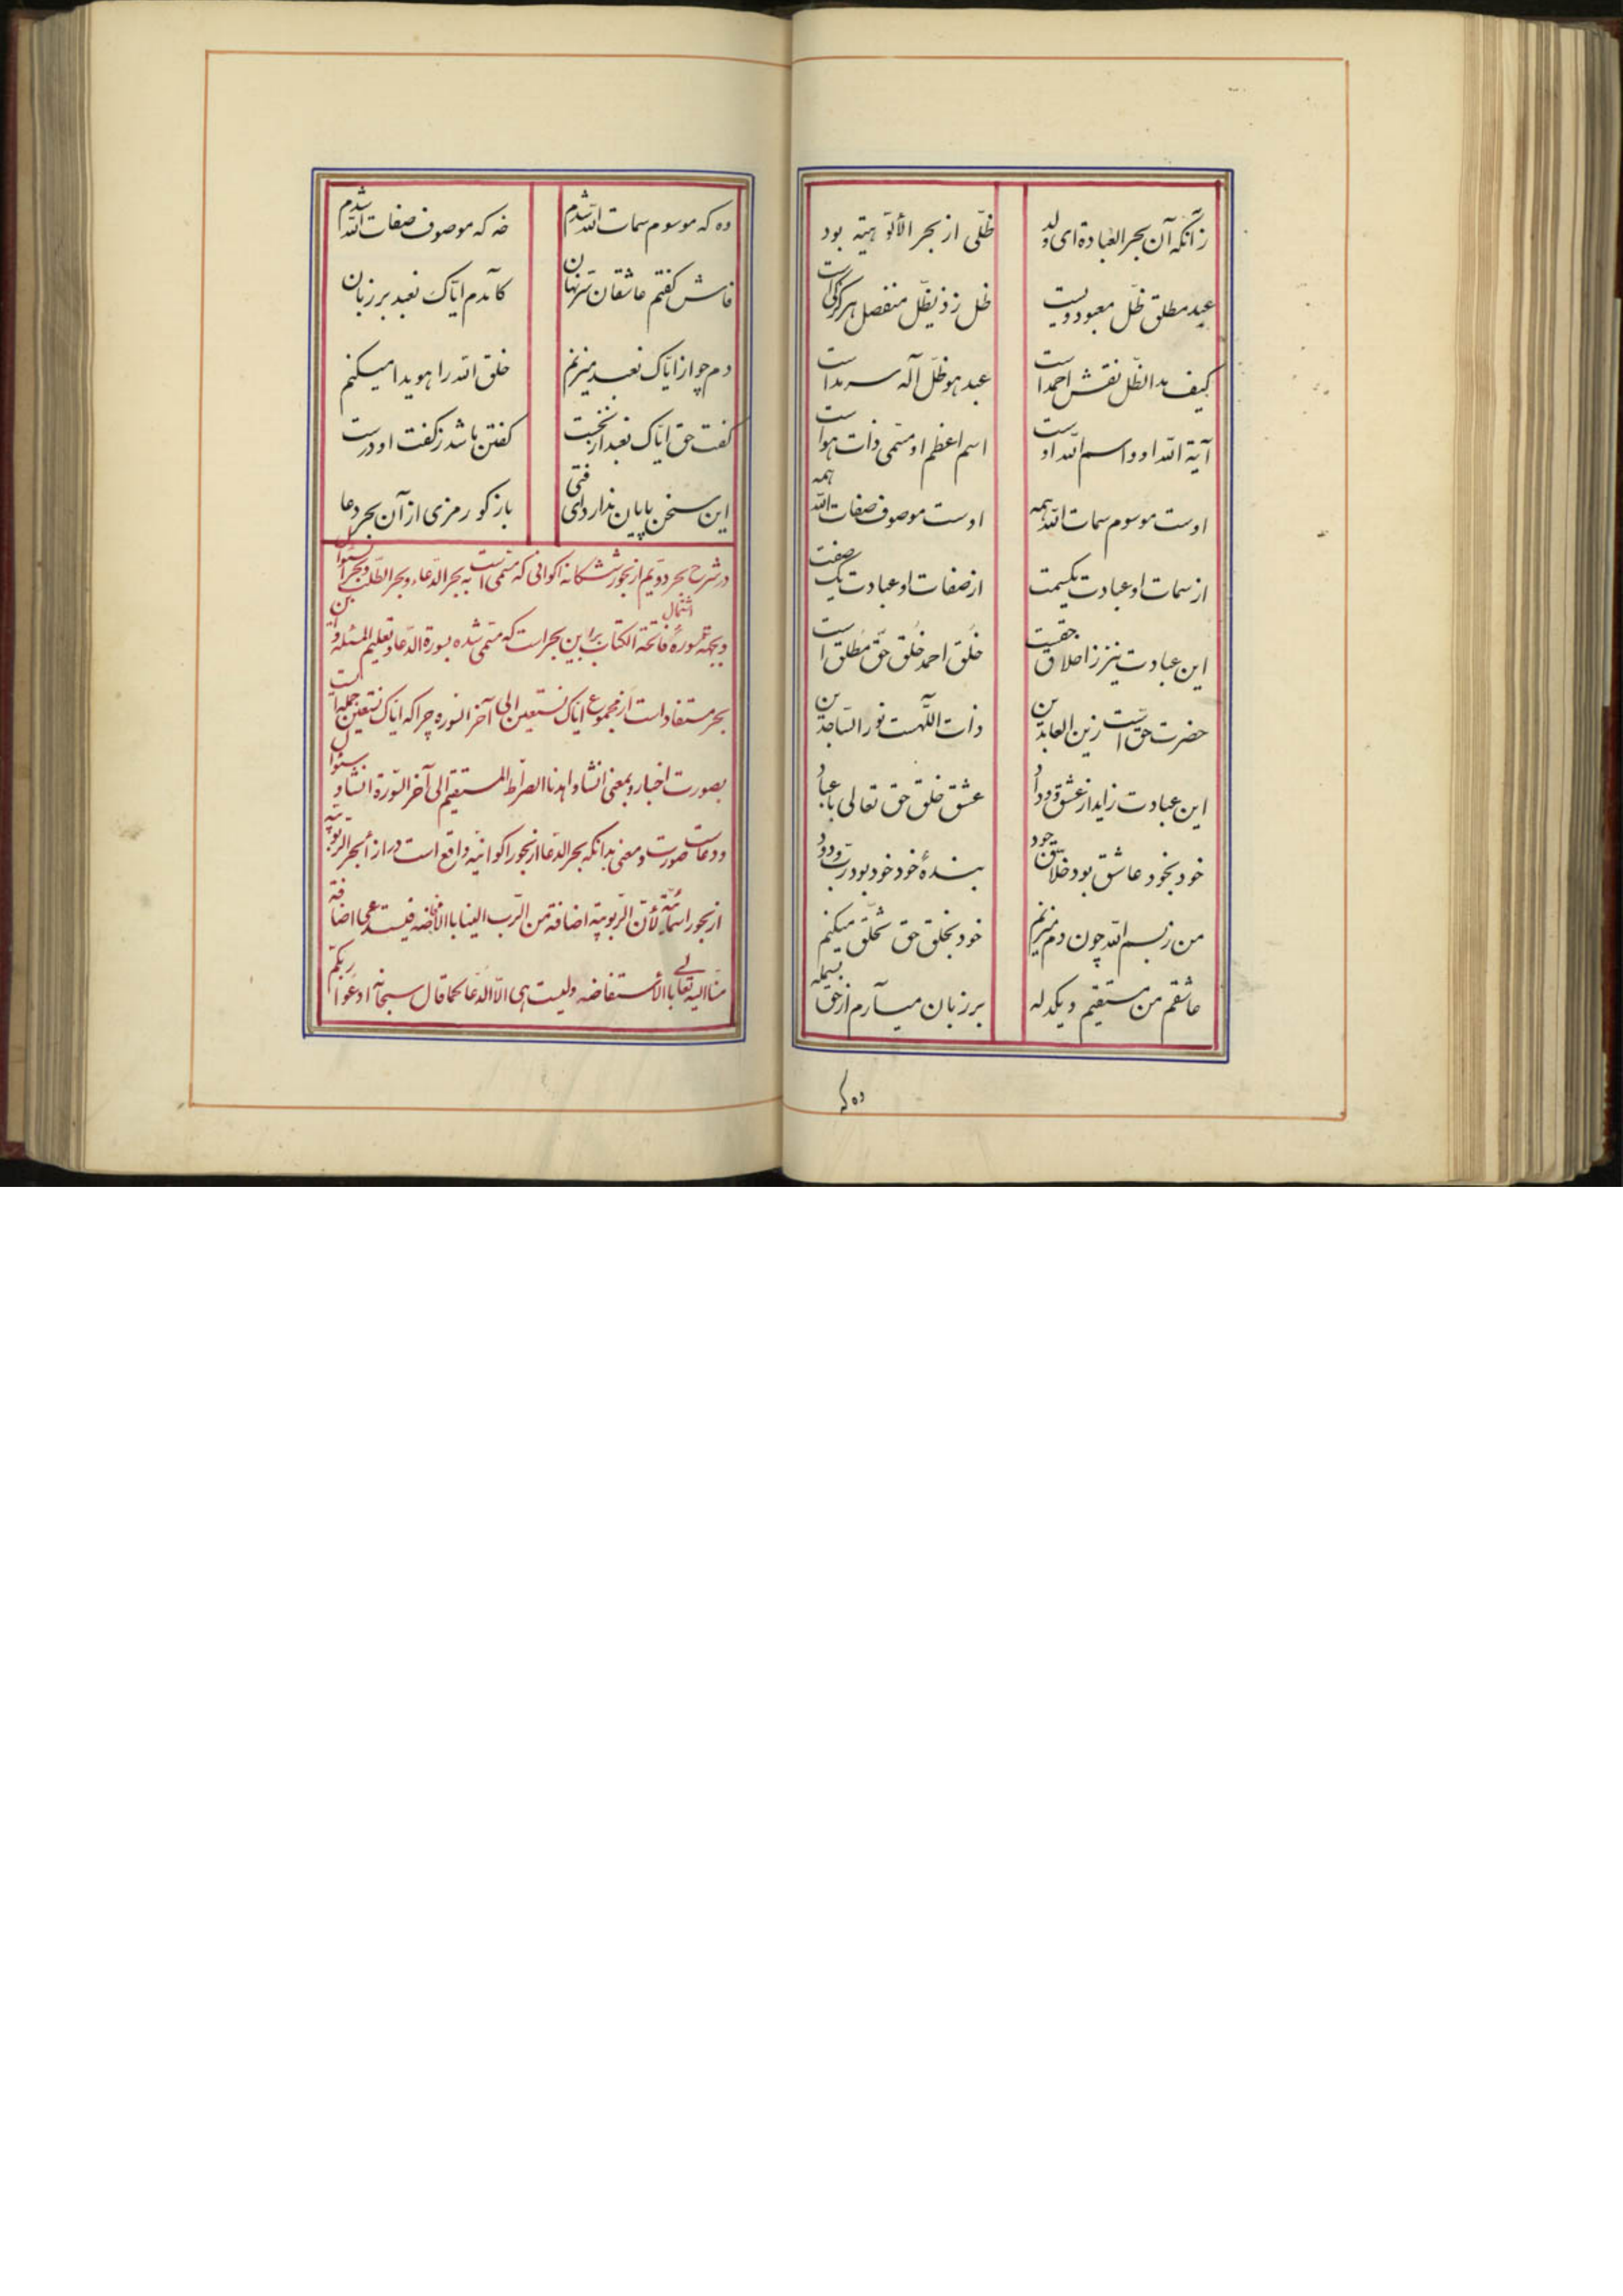 زانکه آن بحر العبادة ای ولد ظلّی از بحر الألوهیّه بود
عبد مطلق ظلّ معبود ویست ظل ز ذیظلّ منفصل هرگز کی است
کیف مدالظلّ نقش احمد است عبد هو ظلّ آله سرمد است
آیة الله او و اسم الله اوست اسم اعظم او مسمّی ذات هو است
اوست موسوم سمات الله همه اوست موصوف صفات الله همه
از سمات او عبادت یکسمت از صفات او عبادت یک صفت
این عبادت نیز ز اخلاق حقیست خُلق احمد خُلق حقّ مُطلق است
حضرت حق است زین العابدین ذات اللّهست نور السّاجدین
این عبادت زاید از عشق و وداد عشق خلق حق تعالی با عباد
خود بخود عاشق بود خلاّق جود بندهٔ خود خود بود ربّ ودود
من ز بسم الله چون دم میزنم خود بخلق حق تخلّق میکنم
عاشقم من مستقیم و یکدله بر زبان میآرم از حق بسمله
ده که
ده که موسوم سمات الله شدم خه که موصوف صفات الله شدم
فاش گفتم عاشقان سرّ نهان کآمدم ایّاک نعبد بر زبان
دم چو از ایّاک نعبد میزنم خلق الله را هویدا میکنم
گفت حق ایّاک نعبد از نخست گفتن ما شد ز گفت او درست
این سخن پایان ندارد ای فتی باز گو رمزی از آن بحر دعا
در شرح بحر دویّم از بحور ششگانه اکوانی که مسمّی است به بحر الدّعاء و بحر الطّلب و بحر السّئوال
و بجهة اشتمال سورهٔ فاتحة الکتاب براین بحر است که مسمّی شده بسورة الدّعا و تعلیم المسئله و این
بحر مستفاد است از مجموع ایّاک نستعین الی آخر السّوره چرا که ایّاک نستعین جمله است
بصورت اخبار و بمعنی انشا و اهدنا الصراط المستقیم الی آخر السّورة انشا و سئوال
و دعاست صورت و معنی بدانکه بحر الدّعا از بحور اکوانیّه واقع است در ازاء بحر الرّبوبیّه
از بحور اسمائیّه لأنّ الرّبوبیّه اضافة من الرّب الینا بالافاضه فیستدعی اضافة
منّا الیه تعالی بالأستفاضه ولیست هی الّا الدّعا کما قال سبحانه ادعوا ربّکم